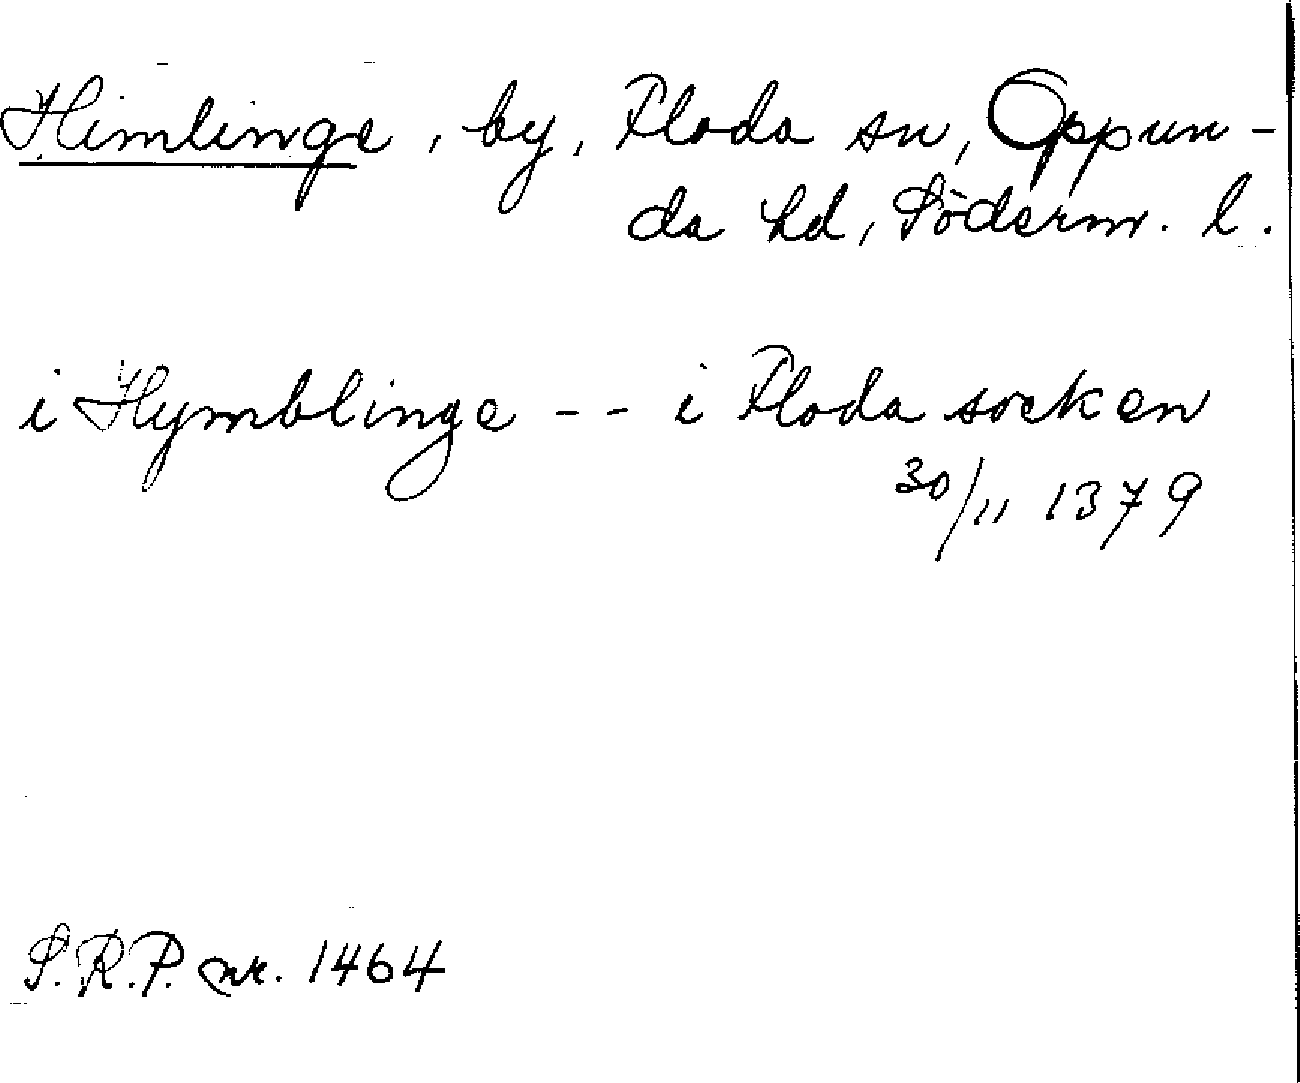 Himlinge, by, Floda sn, Oppun-
da hd, Söderm. l.
i Hymblinge -- i Floda socken
30/11 1379
S.R.P. nr. 1464